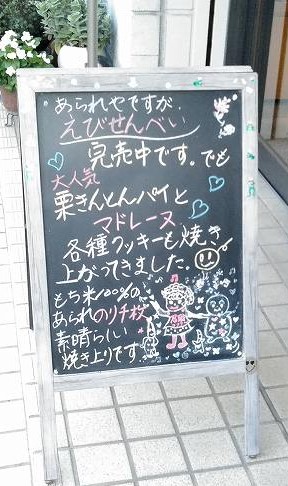 あられやですが、
えびせんべい
完売中です。でも
大人気
栗きんとんパイと
マドレーヌ
各種クッキーも焼き
上がってきました。
もち米100%の
あられのり千枚
素晴らしい
焼き上りです